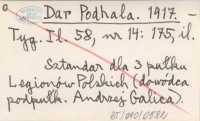 Dar Podhala. 1917. -
Tyg. Il. 58, nr 14: 175, il.
Sztandar dla 3 pułku
Legionów Polskich (dowódca
podpułk. Andrzej Galica).